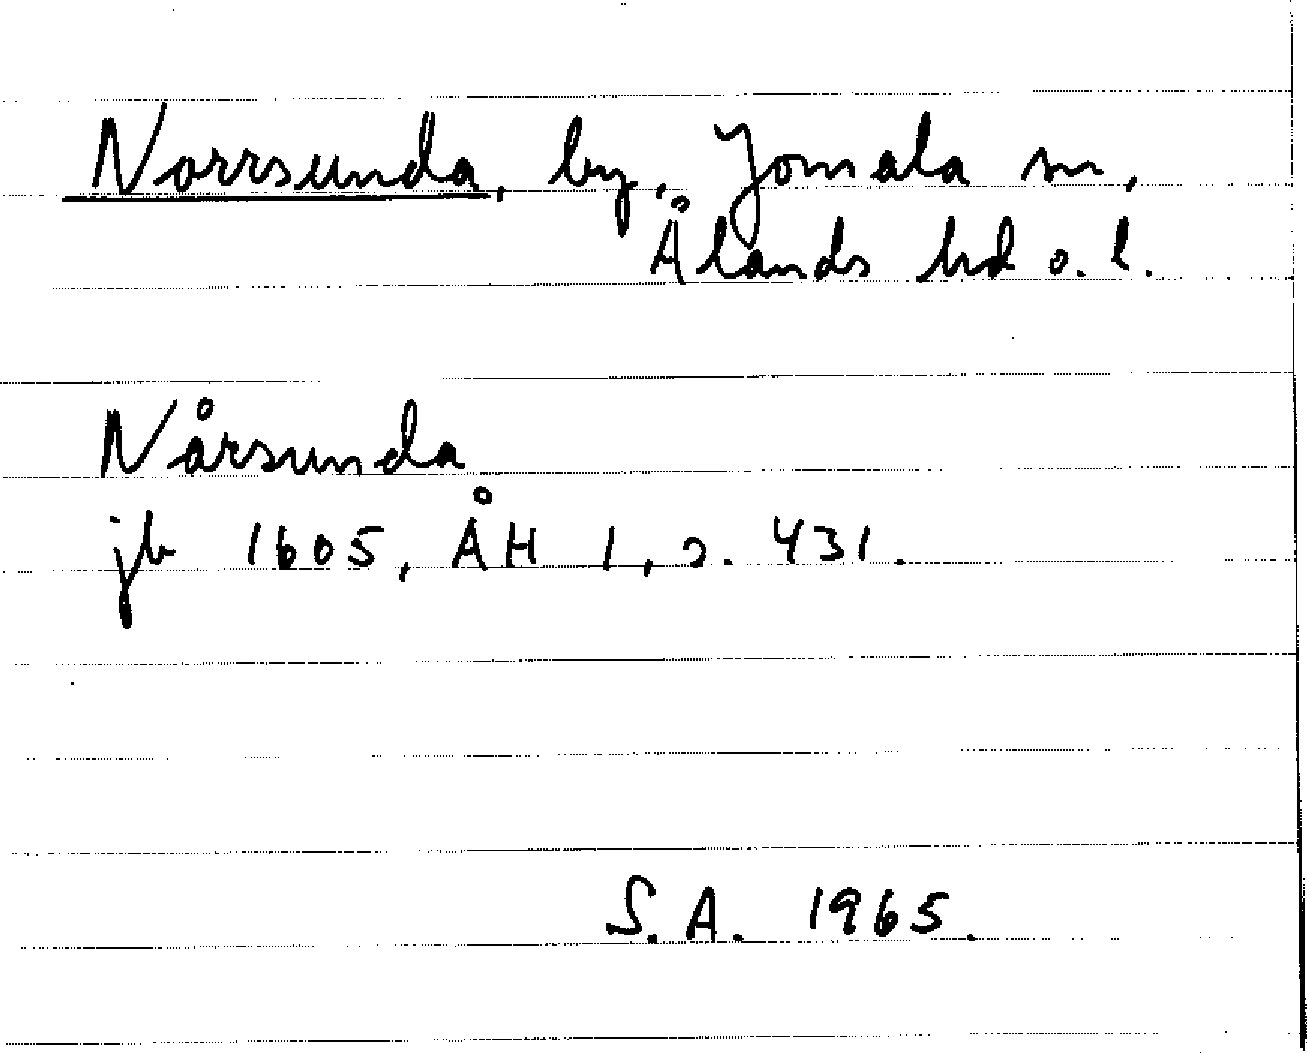 Norrsunda, by, Jomala sn,
Ålands hd o. l.
Nårsunda
jb 1605, ÅH 1, s. 431.
S. A. 1965.